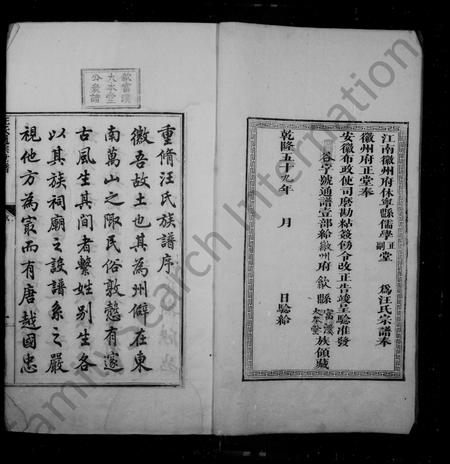 江南徽州府休寧縣儒學正副堂　為汪氏宗譜奉
徽州府正堂奉
安徽布政使司 勘粘簽飭令改正告竣呈驗准發
谷字號通譜壹部給徽州府歙縣富溪大本堂族領藏
乾隆五十九年　月　日驗給
歙富溪
大本堂
公裘譜
重脩汪氏族譜序
徽吾故土也其為州僻在東
南萬山之陬民俗敦慤有邃
古風生其間者繫姓別生各
以其族祠廟之設譜系之嚴
視他方為最而有唐越國忠
FamilySearch International